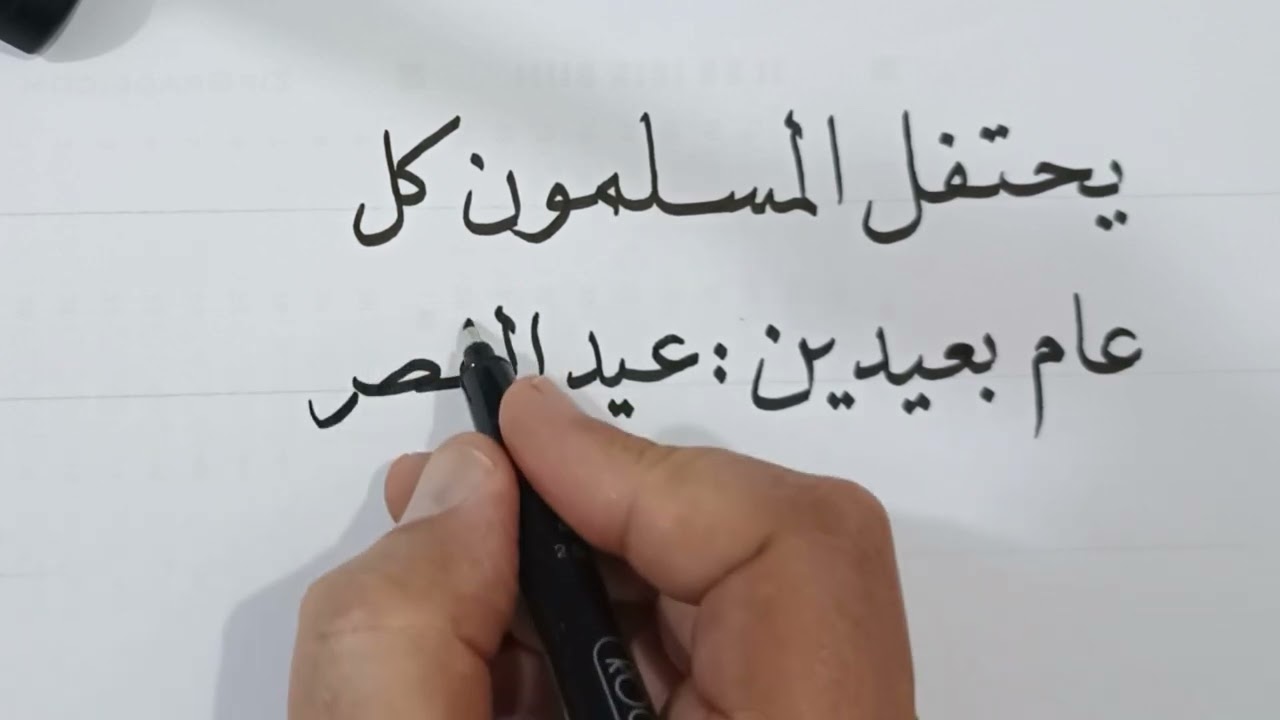 يحتفل المسلمون كل
عام بعيدين : عيد